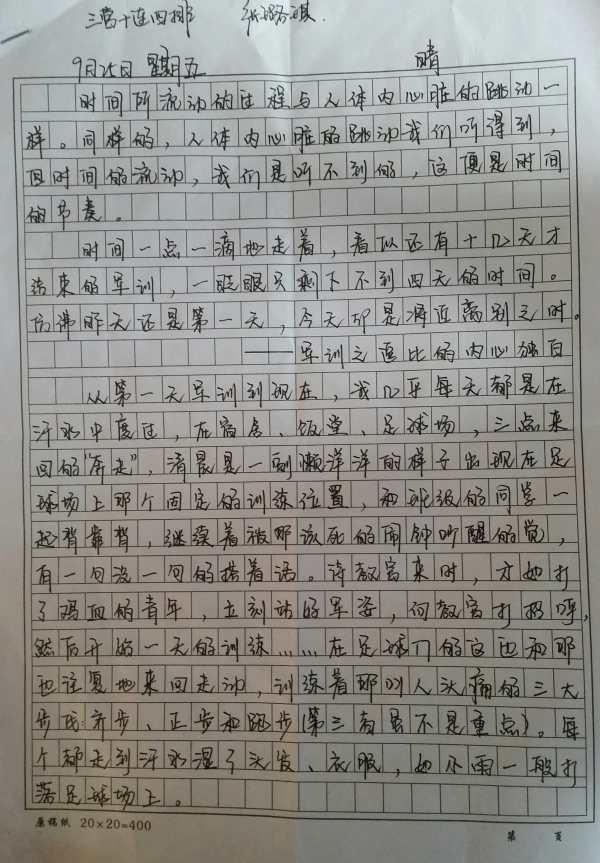 三营十连四排
9月25日 星期五 晴
时间所流动的过程与人体内心脏的跳动一
样。同样的，人体内心脏的跳动我们听得到，
但时间的流动，我们是听不到的，这便是时间
的节奏。
时间一点一滴地走着，看似还有十几天才
结束的军训，一眨眼只剩下不到四天的时间。
仿佛昨天还是第一天，今天却是将近离别之时。
——军训之逼比的内心独白
从第一天军训到现在，我几乎每天都是在
汗水中度过，在宿舍、饭堂、足球场，三点来
回的“奔走”，清晨是一副懒洋洋的样子出现在足
球场上那个固定的训练位置，和班级的同学一
起背靠背，继续着被那该死的闹钟吵醒的觉，
有一句没一句的搭着话。待教官来时，才如打
了鸡血的青年，立刻站好军姿，向教官打招呼，
然后开始一天的训练……在足球门的这边和那
边往复地来回走动，训练着那叫人头痛的三大
步伐齐步、正步和跑步(第三者虽不是重点)。每
个都走到汗水湿了头发、衣服，如小雨一般打
落足球场上。
原稿纸 20×20=400
第 页